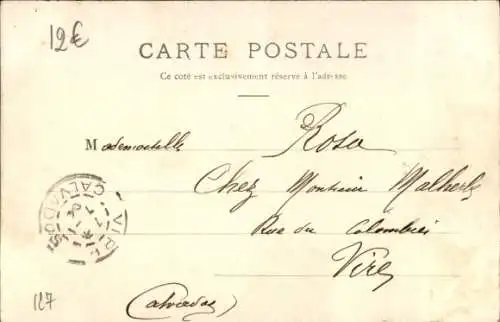 12€
CARTE POSTALE
Ce côté est exclusivement réservé à l'adresse
Mademoiselle Rosa
Chez Monsieur Malherbe
Rue du Colombier
Vire
(Calvados)
VIRE CALVADOS
127